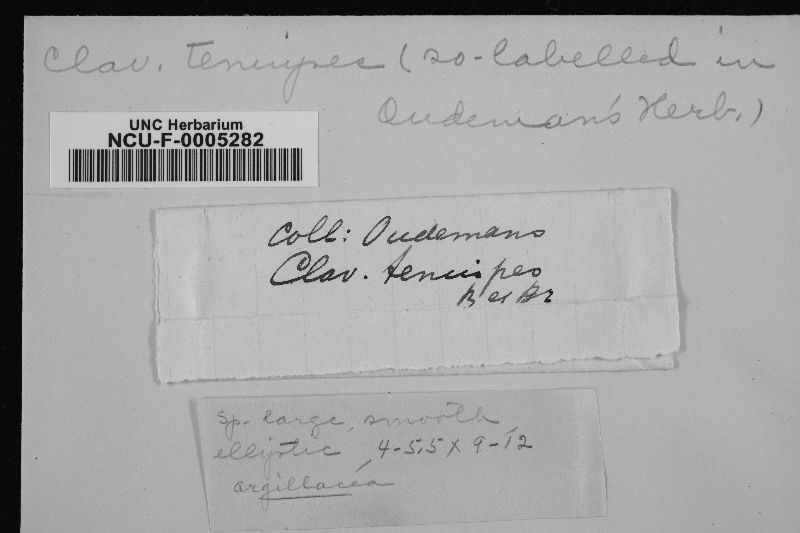 Clav. tenuipes (so-labelled in
Oudeman's Herb.)
UNC Herbarium
NCU-F-0005282
Coll: Oudemans
Clav. tenuipes
B et Br
Sp. large, smooth
elliptic 4-5.5 x 9-12
argillacea